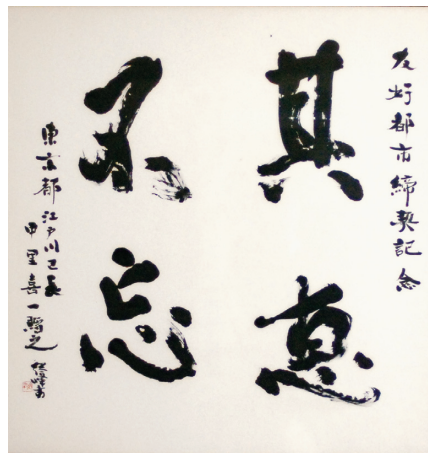 友好都市締契記念
其恵
不忘
東京都江戸川区長
中里喜一